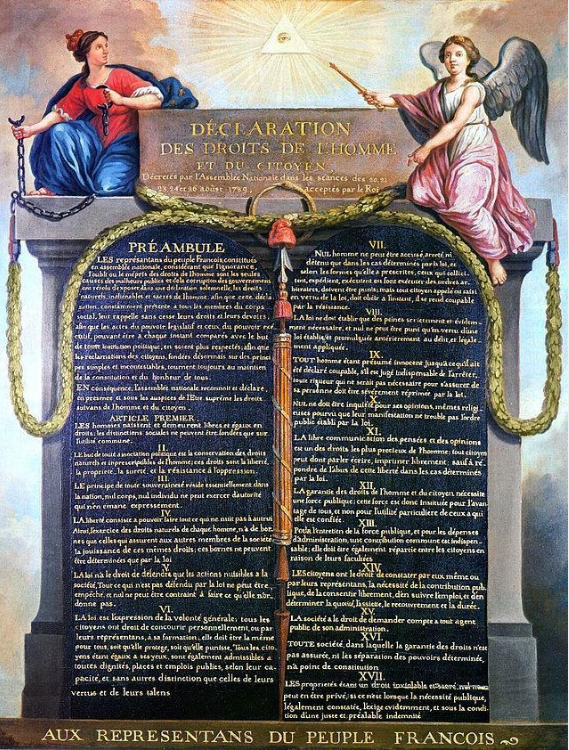 DÉCLARATION
DES DROITS DE L'HOMME
ET DU CITOYEN
Décrétés par l'Assemblée Nationale dans les séances des 20, 21
23, 24 et 26 août 1789, acceptés par le Roi
PRÉAMBULE
LES représentans du peuple François constitués
en assemblée nationale, considérant que l'ignorance,
l'oubli ou le mépris des droits de l'homme sont les seules
causes des malheurs publics et de la corruption des gouvernemens
ont résolu d'exposer dans une déclaration solemnelle, les droits
naturels, inaliénables et sacrés de l'homme; afin que cette décla
ration, constamment présente à tous les membres du corps
social, leur rappelle sans cesse leurs droits et leurs devoirs;
afin que les actes du pouvoir législatif et ceux du pouvoir exé
cutif, pouvant être à chaque instant comparés avec le but
de toute institution politique, en soient plus respectés; afin que
les réclamations des citoyens, fondées désormais sur des prin
pes simples et incontestables, tournent toujours au maintien
de la constitution et du bonheur de tous.
EN conséquence, l'assemblée nationale reconnoit et déclare,
en présence et sous les auspices de l'Etre suprême les droits
suivans de l'homme et du citoyen.
ARTICLE PREMIER.
LES hommes naissent et demeurent libres et égaux en
droits; les distinctions sociales ne peuvent être fondées que sur
l'utilité commune.
II.
LE but de toute association politique est la conservation des droits
naturels et imprescriptibles de l'homme; ces droits sont la liberté,
la propriété, la sureté, et la résistance à l'oppression.
III.
LE principe de toute souveraineté réside essentiellement dans
la nation, nul corps, nul individu ne peut exercer d'autorité
qui n'en émane expressement.
IV.
LA liberté consiste à pouvoir faire tout ce qui ne nuit pas à autrui
Ainsi, l'exercice des droits naturels de chaque homme, n'a de bor
nes que celles qui assurent aux autres membres de la société
la jouissance de ces mêmes droits; ces bornes ne peuvent
être déterminées que par la loi
V.
LA loi n'a le droit de défendre que les actions nuisibles à la
société. Tout ce qui n'est pas défendu par la loi ne peut être
empêché, et nul ne peut être contraint à faire ce qu'elle n'or
donne pas.
VI.
LA loi est l'expression de la volonté générale; tous les
citoyens ont droit de concourir personnellement, ou par
leurs représentans, à sa formation; elle doit être la même
pour tous, soit qu'elle protège, soit qu'elle punisse. Tous les cito
yens étant égaux à ses yeux, sont également admissibles à
toutes dignités, places et emplois publics, selon leur ca
pacité, et sans autres distinction que celles de leurs
vertus et de leurs talens
VII.
NUL homme ne peut être accusé, arreté ni
détenu que dans les cas déterminés par la loi, et
selon les formes qu'elle a prescrites, ceux qui sollici
tent, expédient, exécutent ou font exécuter des ordres ar
bitraires, doivent être punis; mais tout citoyen appelé ou saisi
en vertu de la loi, doit obéir à l'instant, il se rend coupable
par la résistance.
VIII.
LA loi ne doit établir que des peines strictement et évidem
ment nécessaire, et nul ne peut être puni qu'en vertu d'une
loi établie, et promulguée antérieurement au délit, et légale
ment appliquée.
IX.
TOUT homme étant présumé innocent jusqu'à ce qu'il ait
été déclaré coupable, s'il est jugé indispensable de l'arrêter,
toute rigueur qui ne serait pas nécessaire pour s'assurer de
sa personne doit être sévèrement réprimée par la loi.
X.
NUL ne doit être inquiété pour ses opinions, mêmes religi
euses pourvu que leur manifestation ne trouble pas l'ordre
public établi par la loi.
XI.
LA libre communication des pensées et des opinions
est un des droits les plus precieux de l'homme; tout citoyen
peut donc parler écrire, imprimer librement; sauf à ré
pondre de l'abus de cette liberté dans les cas déterminés
par la loi.
XII.
LA garantie des droits de l'homme et du citoyen nécessite
une force publique; cette force est donc instituée pour l'avan
tage de tous, et non pour l'utilité particulière de ceux a qui
elle est confiée.
XIII.
Pour l'entretien de la force publique, et pour les dépenses
d'administration, une contribution commune est indispen
sable; elle doit être également répartie entre les citoyens en
raison de leurs facultées
XIV.
LES citoyens ont le droit de constater par eux même ou
par leurs représentans, la nécessité de la contribution pub
lique, de la consentir librement, d'en suivre l'emploi, et d'en
déterminer la quotité, l'assiette, le recouvrement et la durée.
XV.
LA société a le droit de demander compte a tout agent
public de son administration.
XVI.
TOUTE société, dans laquelle la garantie des droits n'est
pas assurée, ni les séparation des pouvoirs déterminée,
n'a point de constitution
XVII.
LES propriétés étant un droit inviolable et sacré, nul ne
peut en être privé, si ce n'est lorsque la nécessité publique,
légalement constatée, l'exige évidemment, et sous la condi
tion d'une juste et préalable indemnité
AUX REPRESENTANS DU PEUPLE FRANCOIS